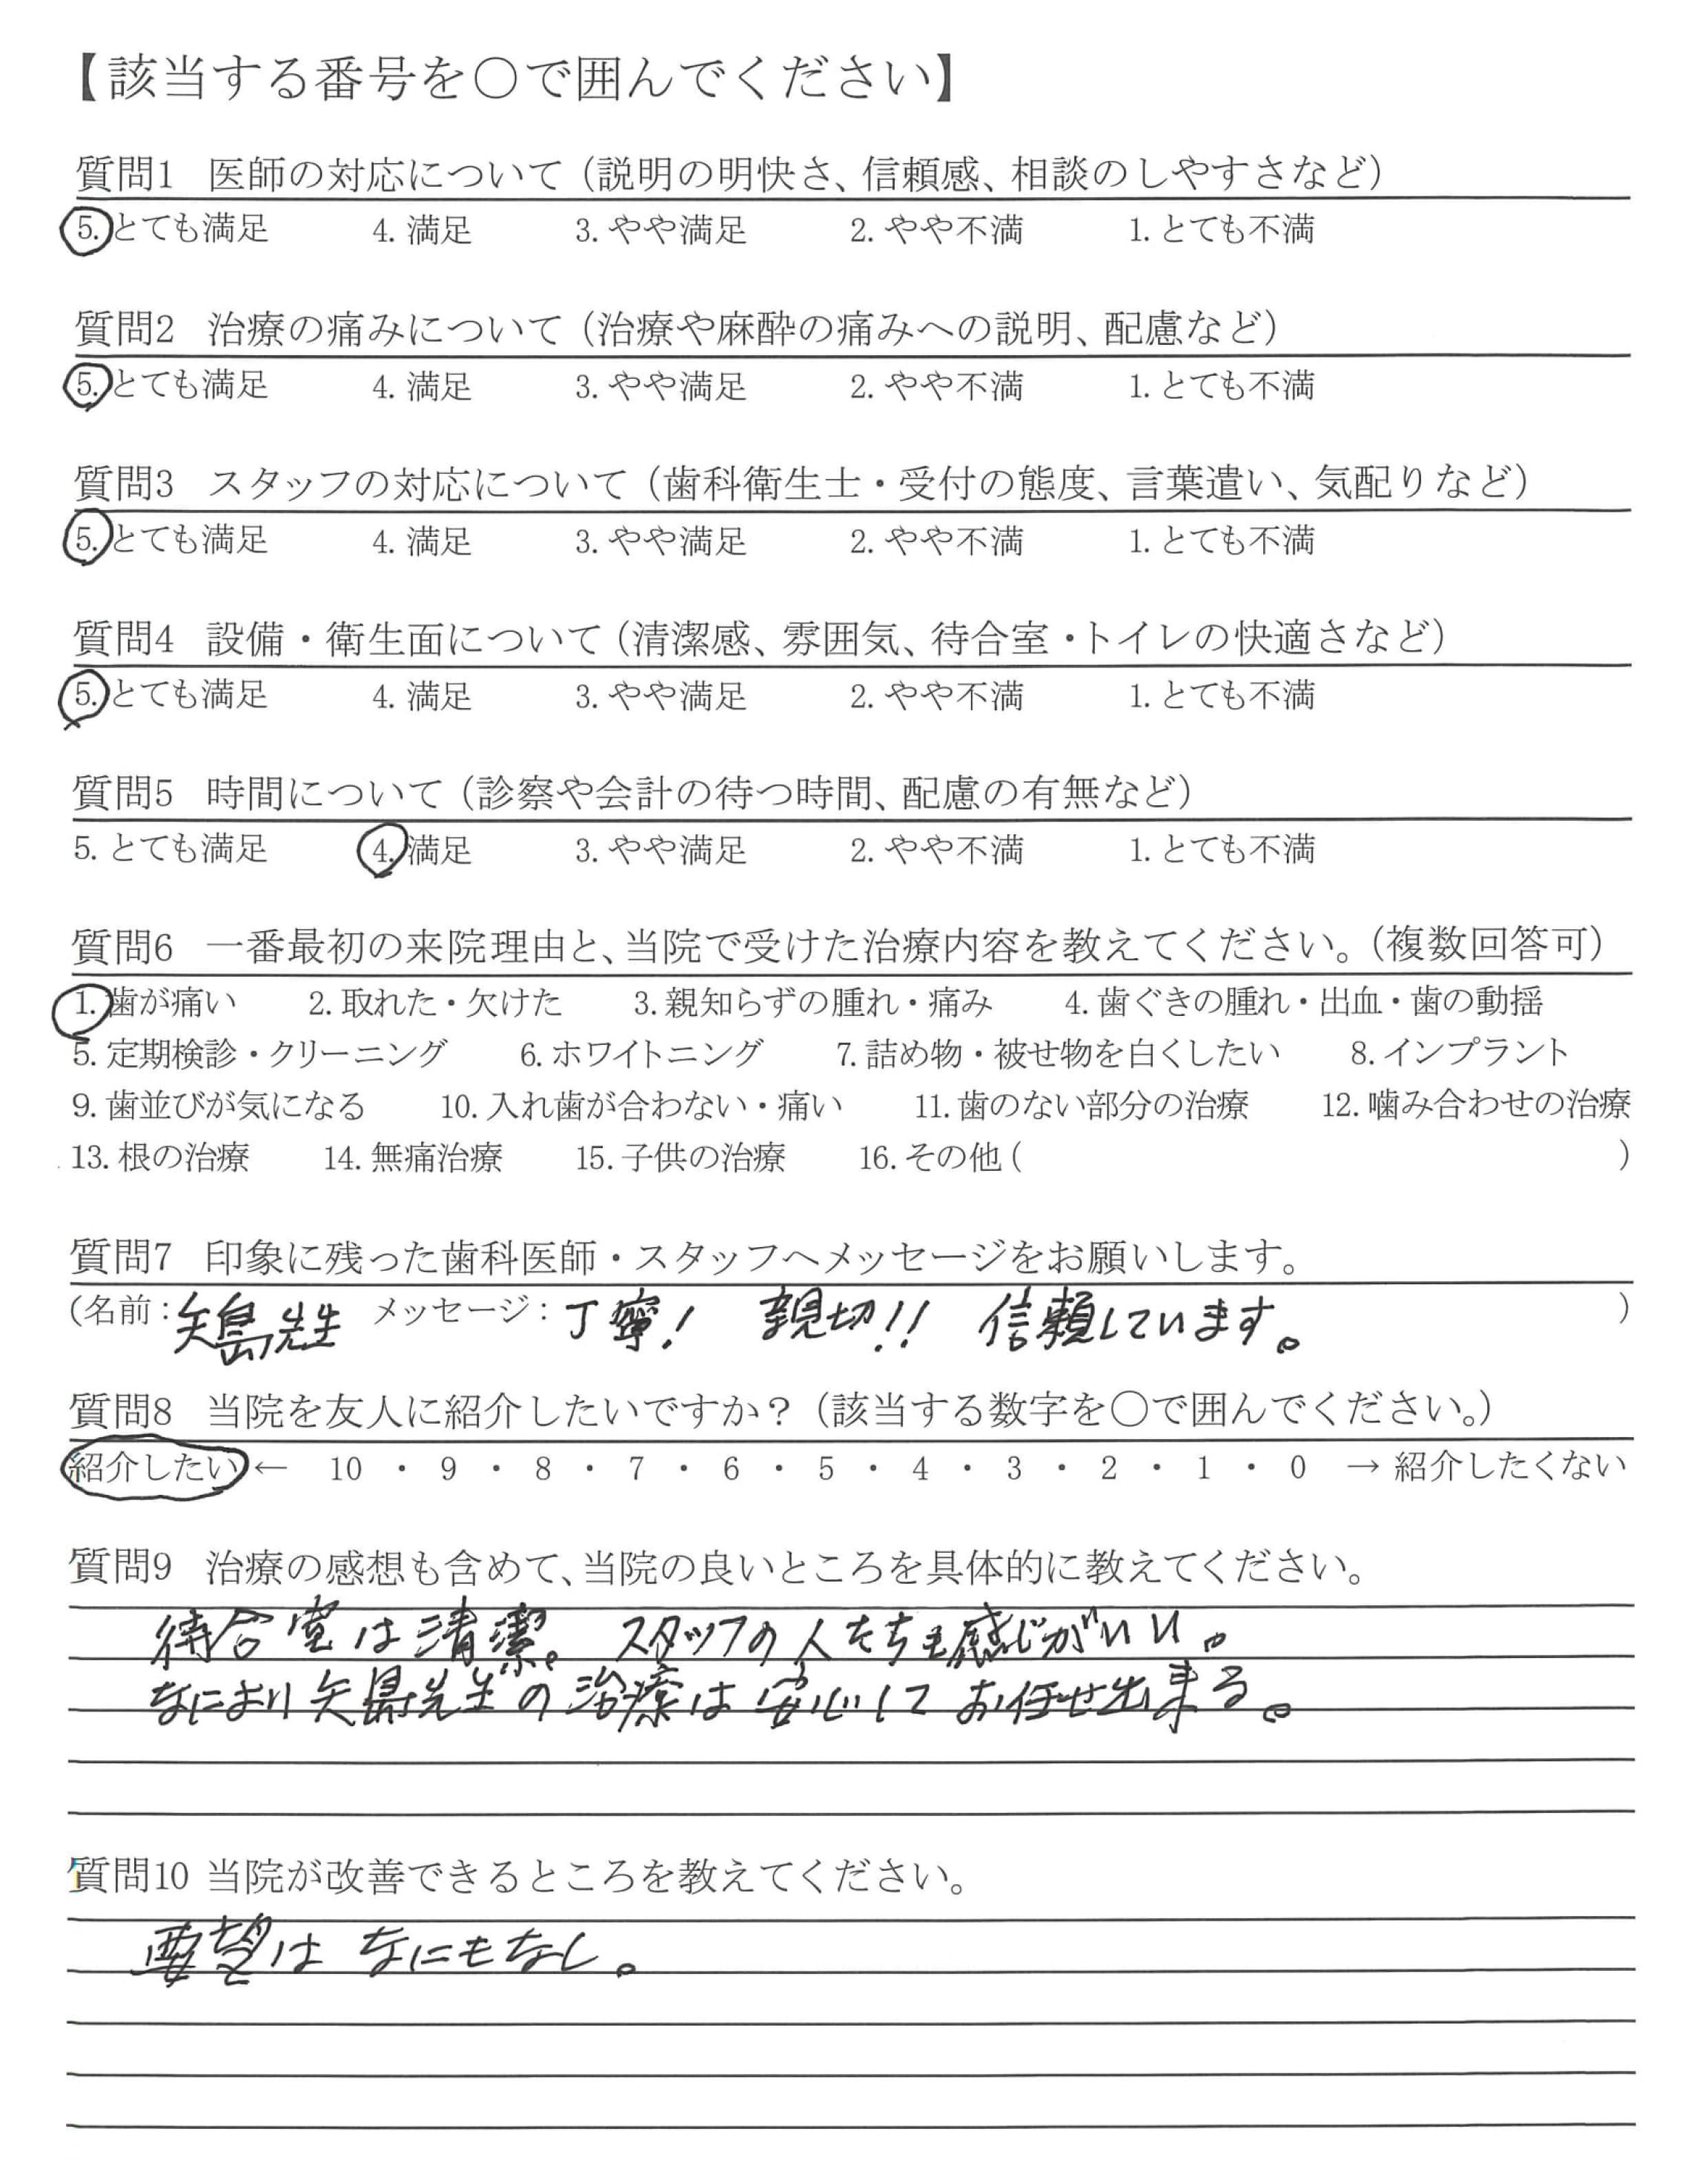 【該当する番号を○で囲んでください】
質問1 医師の対応について（説明の明快さ、信頼感、相談のしやすさなど）
5. とても満足 4. 満足 3. やや満足 2. やや不満 1. とても不満
質問2 治療の痛みについて（治療や麻酔の痛みへの説明、配慮など）
5. とても満足 4. 満足 3. やや満足 2. やや不満 1. とても不満
質問3 スタッフの対応について（歯科衛生士・受付の態度、言葉遣い、気配りなど）
5. とても満足 4. 満足 3. やや満足 2. やや不満 1. とても不満
質問4 設備・衛生面について（清潔感、雰囲気、待合室・トイレの快適さなど）
5. とても満足 4. 満足 3. やや満足 2. やや不満 1. とても不満
質問5 時間について（診察や会計の待つ時間、配慮の有無など）
5. とても満足 4. 満足 3. やや満足 2. やや不満 1. とても不満
質問6 一番最初の来院理由と、当院で受けた治療内容を教えてください。（複数回答可）
1. 歯が痛い 2. 取れた・欠けた 3. 親知らずの腫れ・痛み 4. 歯ぐきの腫れ・出血・歯の動揺
5. 定期検診・クリーニング 6. ホワイトニング 7. 詰め物・被せ物を白くしたい 8. インプラント
9. 歯並びが気になる 10. 入れ歯が合わない・痛い 11. 歯のない部分の治療 12. 噛み合わせの治療
13. 根の治療 14. 無痛治療 15. 子供の治療 16. その他（ ）
質問7 印象に残った歯科医師・スタッフへメッセージをお願いします。
（名前：矢島先生 メッセージ：丁寧！ 親切！！ 信頼しています。 ）
質問8 当院を友人に紹介したいですか？（該当する数字を○で囲んでください。）
紹介したい ← 10 ・ 9 ・ 8 ・ 7 ・ 6 ・ 5 ・ 4 ・ 3 ・ 2 ・ 1 ・ 0 → 紹介したくない
質問9 治療の感想も含めて、当院の良いところを具体的に教えてください。
待合室は清潔。スタッフの人たちも感じがいい。
なにより矢島先生の治療は安心してお任せ出来る。
質問10 当院が改善できるところを教えてください。
要望はなにもなし。